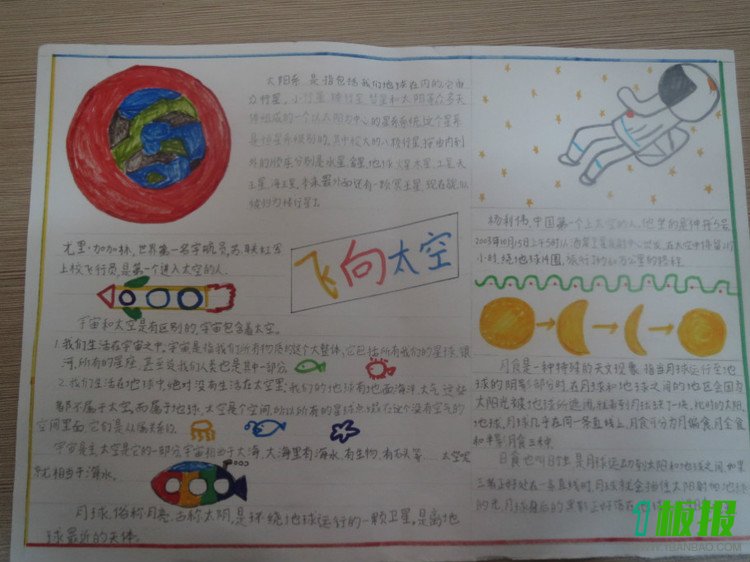 太阳系 是指包括我们地球在内的
行星,小行星,矮行星,彗星和太阳等众多天
体组成的一个以太阳为中心的星系系统,这个星系
是恒星系级别的,其中较大的八颗行星,按由内到
外的顺序分别是水星 金星,地球,火星,木星,土星,天
王星,海王星,本来最外面还有一颗冥王星,现在
杨利伟,中国第一个上太空的人,他坐的是神舟5号,
2003年10月15日上午9时从酒泉卫星发射中心出发,在太空中停留21个
小时,绕地球14圈,旅行了60万公里的路程.
尤里·加加林,世界第一名宇航员,苏联红军
上校飞行员,是第一个进入太空的人.
飞向太空
宇宙和太空是有区别的,宇宙包含着太空。
1.我们生活在宇宙之中,宇宙是指我们所有物质的这个大整体,它包括所有我们的星球,银
河,所有的星座,甚至说我们人类也是其中一部分
2.我们生活在地球中,绝对没有生活在太空里,我们的地球有地面海洋,大气,这些
都不属于太空,而属于地球,太空是个空间,所以所有的星球点缀在这个没有空气的
空间里面,它们是从属关系
宇宙是主太空是它的一部分宇宙相当于大海,大海里有海水,有生物,有石头等……太空
就相当于海水。
月球,俗称月亮,古称太阴,是环绕地球运行的一颗卫星,是离地
球最近的天体。
月食是一种特殊的天文现象,指当月球运行至地
球的阴影部分时,在月球和地球之间的地区会因为
太阳光被地球所遮
地球,月球几乎在同一条直线上,月食可分为月偏食,月全食
和半影月食三种
日食也叫日蚀,是月球运动到太阳和地球之间,如果
三者正好处在一条直线时,月球就会挡住太阳射向地球
的光,月球身后的黑影正好落在
板报
WWW.1BANBAO.COM